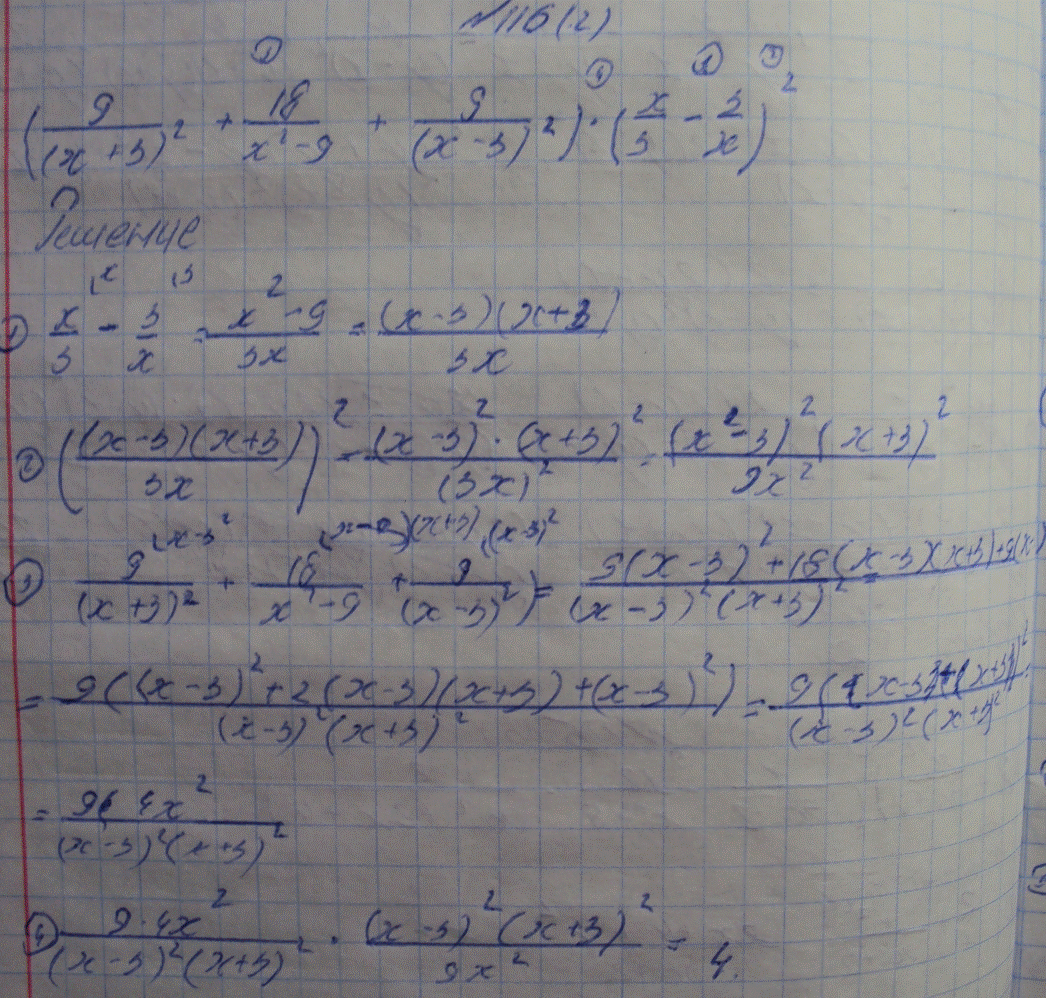 №116(2)
(9/(x+3)² + 18/(x²-9) + 9/(x-3)²) · (x/3 - 3/x)²
Решение
① x/3 - 3/x = (x²-9)/3x = (x-3)(x+3)/3x
② ((x-3)(x+3)/3x)² = (x-3)²·(x+3)²/(3x)² = (x²-3)²(x+3)²/9x²
③ 9/(x+3)² + 18/(x²-9) + 9/(x-3)²) = (9(x-3)²+18(x-3)(x+3)+9(x-)/((x-3)²(x+3)²) =
= 9((x-3)²+2(x-3)(x+3)+(x-3)²)/((x-3)²(x+3)²) = 9((x-3)+(x+3))²/((x-3)²(x+3)²) =
= 9(4x²/((x-3)²(x+3)²)
④ 9·4x²/((x-3)²(x+3)²) · (x-3)²(x+3)²/9x² = 4.